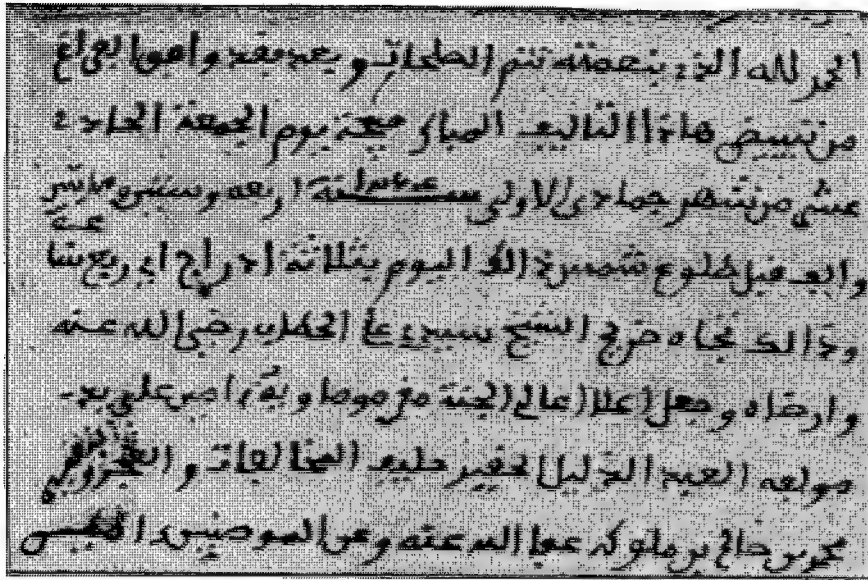 الحمد لله الذي بنعمته تتم الصلحات وبعد فقد وافق الفراغ
من تبييض هاذا التاليف المبارك صبيحة يوم الجمعة الحادي
عشر من شهر جمادى الاولى سنة اربعه وستين ومايتين
والف قبل طلوع شمس ذالك اليوم بثلاثة ادراج اي ربع ساعة
وذالك تجاه ضريح الشيخ سيدي علي الحطاب رضي الله عنه
وارضاه وجعل اعلا اعالي الجنة على يد
مولفه العبد الذليل الحقير حليف المخالفات والعجز
محمد بن صالح بن ملوكه عفا الله عنه وعن المومنين